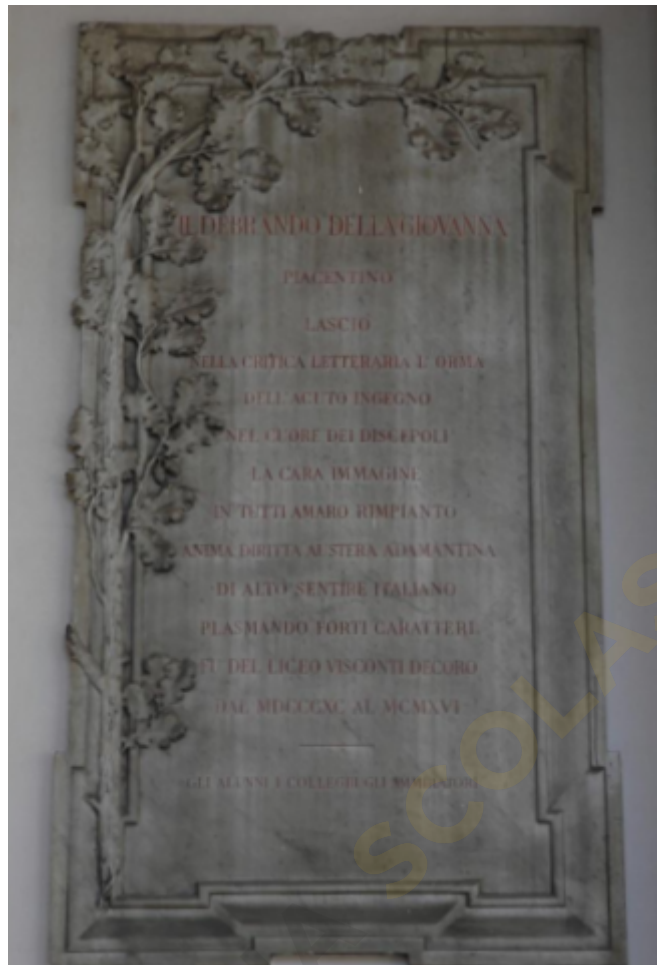 ILDEBRANDO DELLA GIOVANNA
PIACENTINO
LASCIÒ
NELLA CRITICA LETTERARIA L' ORMA
DELL' ACUTO INGEGNO
NEL CUORE DEI DISCEPOLI
LA CARA IMMAGINE
IN TUTTI AMARO RIMPIANTO
ANIMA DIRITTA AUSTERA ADAMANTINA
DI ALTO SENTIRE ITALIANO
PLASMANDO FORTI CARATTERI
FU DEL LICEO VISCONTI DECORO
DAL MDCCCXC AL MCMXVI
GLI ALUNNI I COLLEGHI GLI AMMIRATORI
SCOLAS